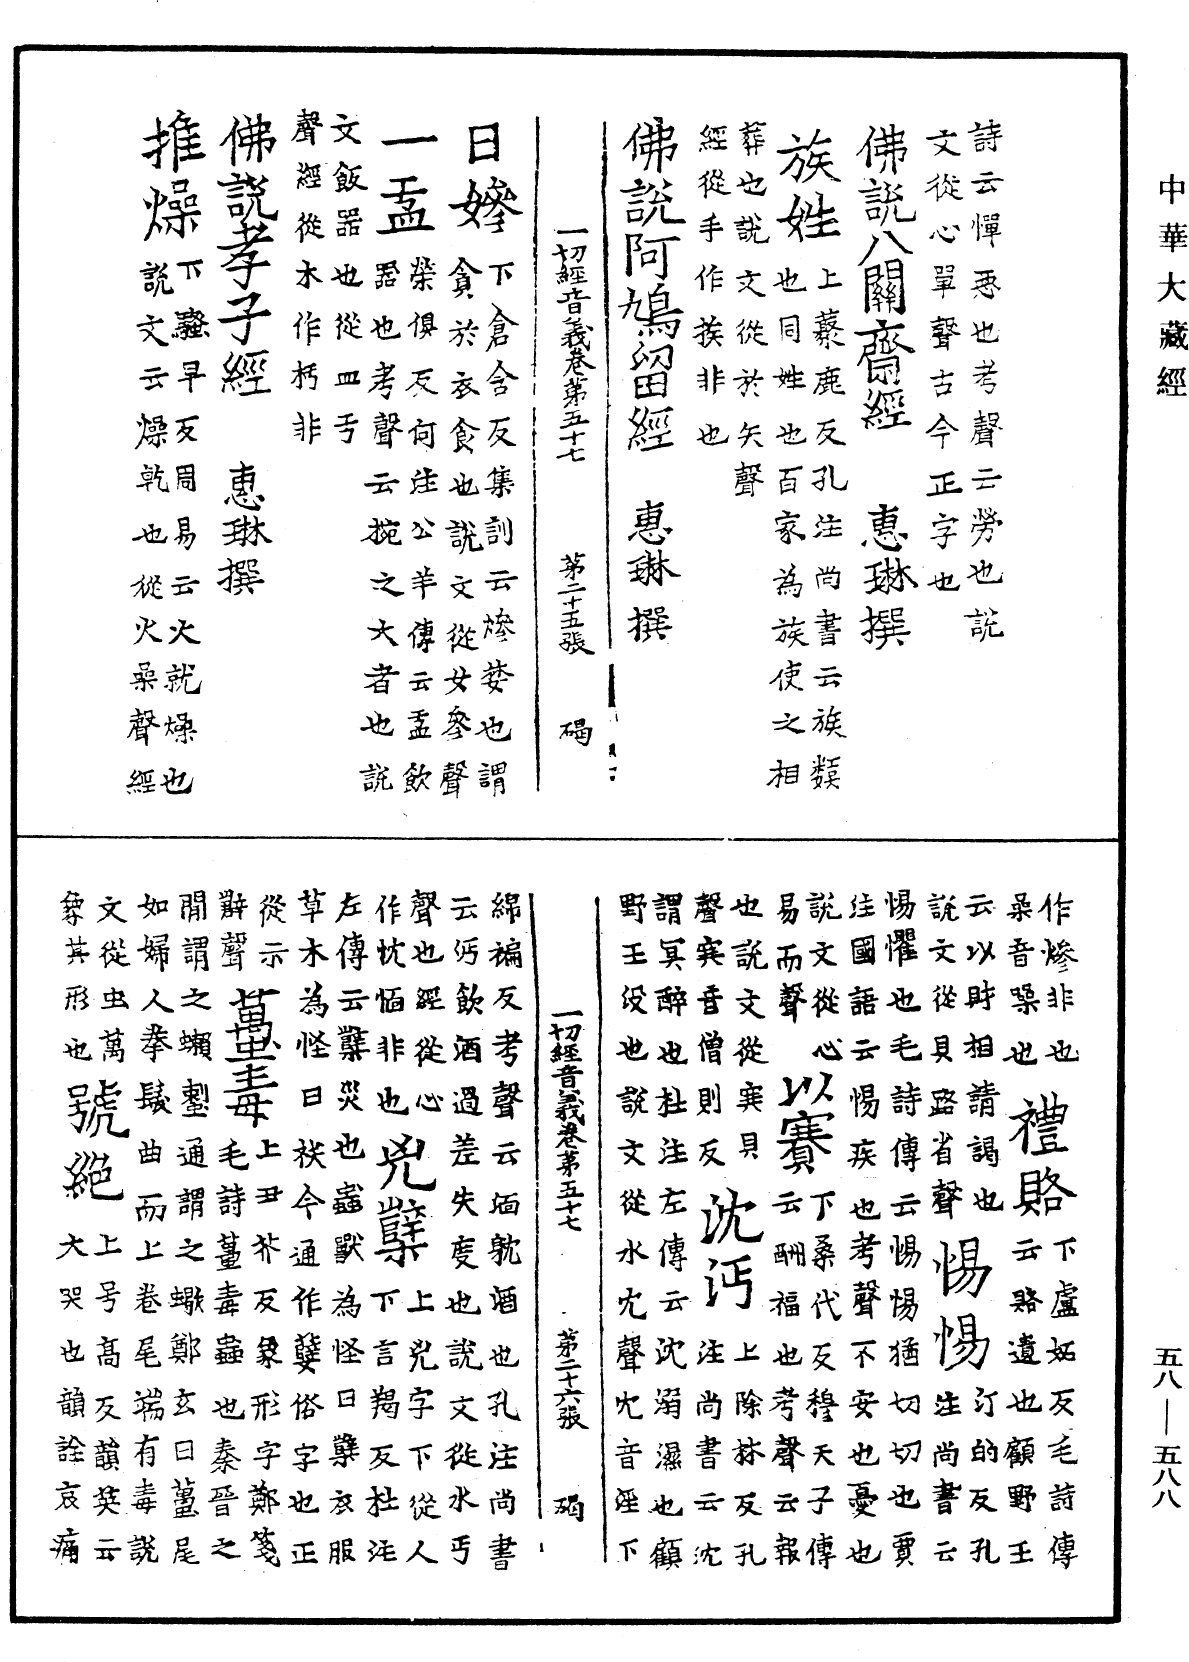 中華大藏經
詩云憚惡也考聲云勞也說
文從心單聲古今正字也
佛說八關齋經 惠琳撰
族姓 上蔟鹿反孔注尚書云族類
也同姓也百家為族使之相
葬也說文從㫃矢聲
經從手作挨非也
佛說阿鳩留經 惠琳撰
一切經音義卷第五十七 第二十五張 碣
日嫪 下倉含反集訓云嫪婪也謂
貪於衣食也說文從女參聲
一盂 榮俱反何注公羊傳云盂飲
器也考聲云椀之大者也說
文飯器也從皿亏
聲經從木作杇非
佛說孝子經 惠琳撰
推燥 下騷早反周易云火就燥也
說文云燥乾也從火喿聲經
作㷮非也
喿音噪也 禮賂 下盧妬反毛詩傳
云賂遺也顧野王
云以財相請謁也
說文從貝路省聲 惕惕 汀的反孔
注尚書云
惕懼也毛詩傳云惕惕猶切切也賈
注國語云惕疾也考聲不安也憂也
說文從心
易而聲 以賽 下桑代反穆天子傳
云酬福也考聲云報
也說文從𡨄貝
聲𡨄音僧則反 沈湎 上除林反孔
注尚書云沈
謂冥醉也杜注左傳云沈溺濕也顧
野王沒也說文從水冘聲冘音淫下
一切經音義卷第五十七 第二十六張 碣
綿褊反考聲云湎躭酒也孔注尚書
云沔飲酒過差失度也說文從水丏
聲也經從心
作忱愐非也 兇孽 上兇字下從人
下言羯反杜注
左傳云孽災也蟲獸為怪曰孽衣服
草木為怪曰䄏今通作孽俗字也正
從示
辥聲 蠆毒 上丑芥反象形字鄭箋
毛詩蠆毒蟲也秦晉之
間謂之蠍㓨通謂之蠍鄭玄曰蠆尾
如婦人拳髮曲而上卷尾端有毒說
文從虫萬
象其形也 號絕 上号高反韻英云
大哭也韻詮哀痛
五八—五八八